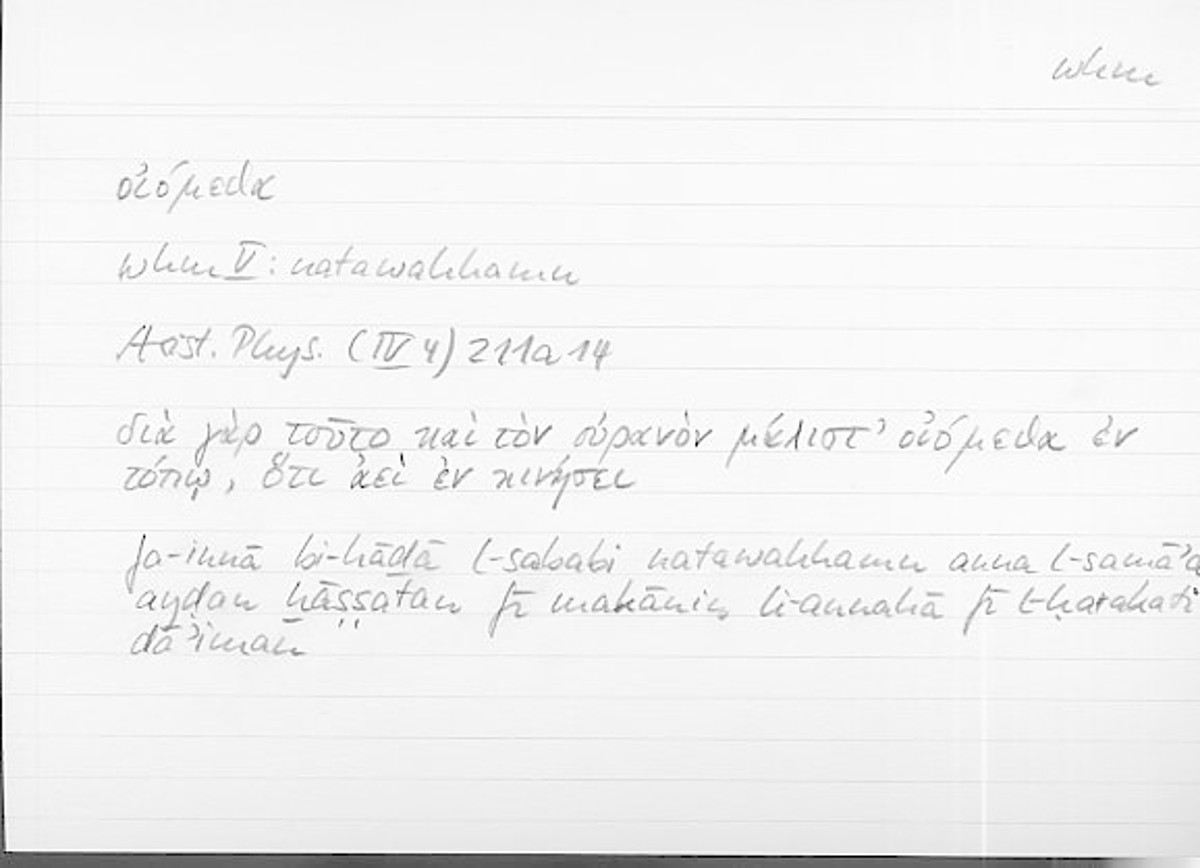 whm
οἰόμεθα
whm V: natawahhamu
Arist. Phys. (IV 4) 211a14
διὰ γὰρ τοῦτο καὶ τὸν οὐρανὸν μάλιστ’ οἰόμεθα ἐν
τόπῳ, ὅτι ἀεὶ ἐν κινήσει
fa-innā bi-hāḏā l-sababi natawahhamu anna l-samāʾa
ayḍan ḫāṣṣatan fī makānin, li-annahā fī l-ḥarakati
dāʾiman